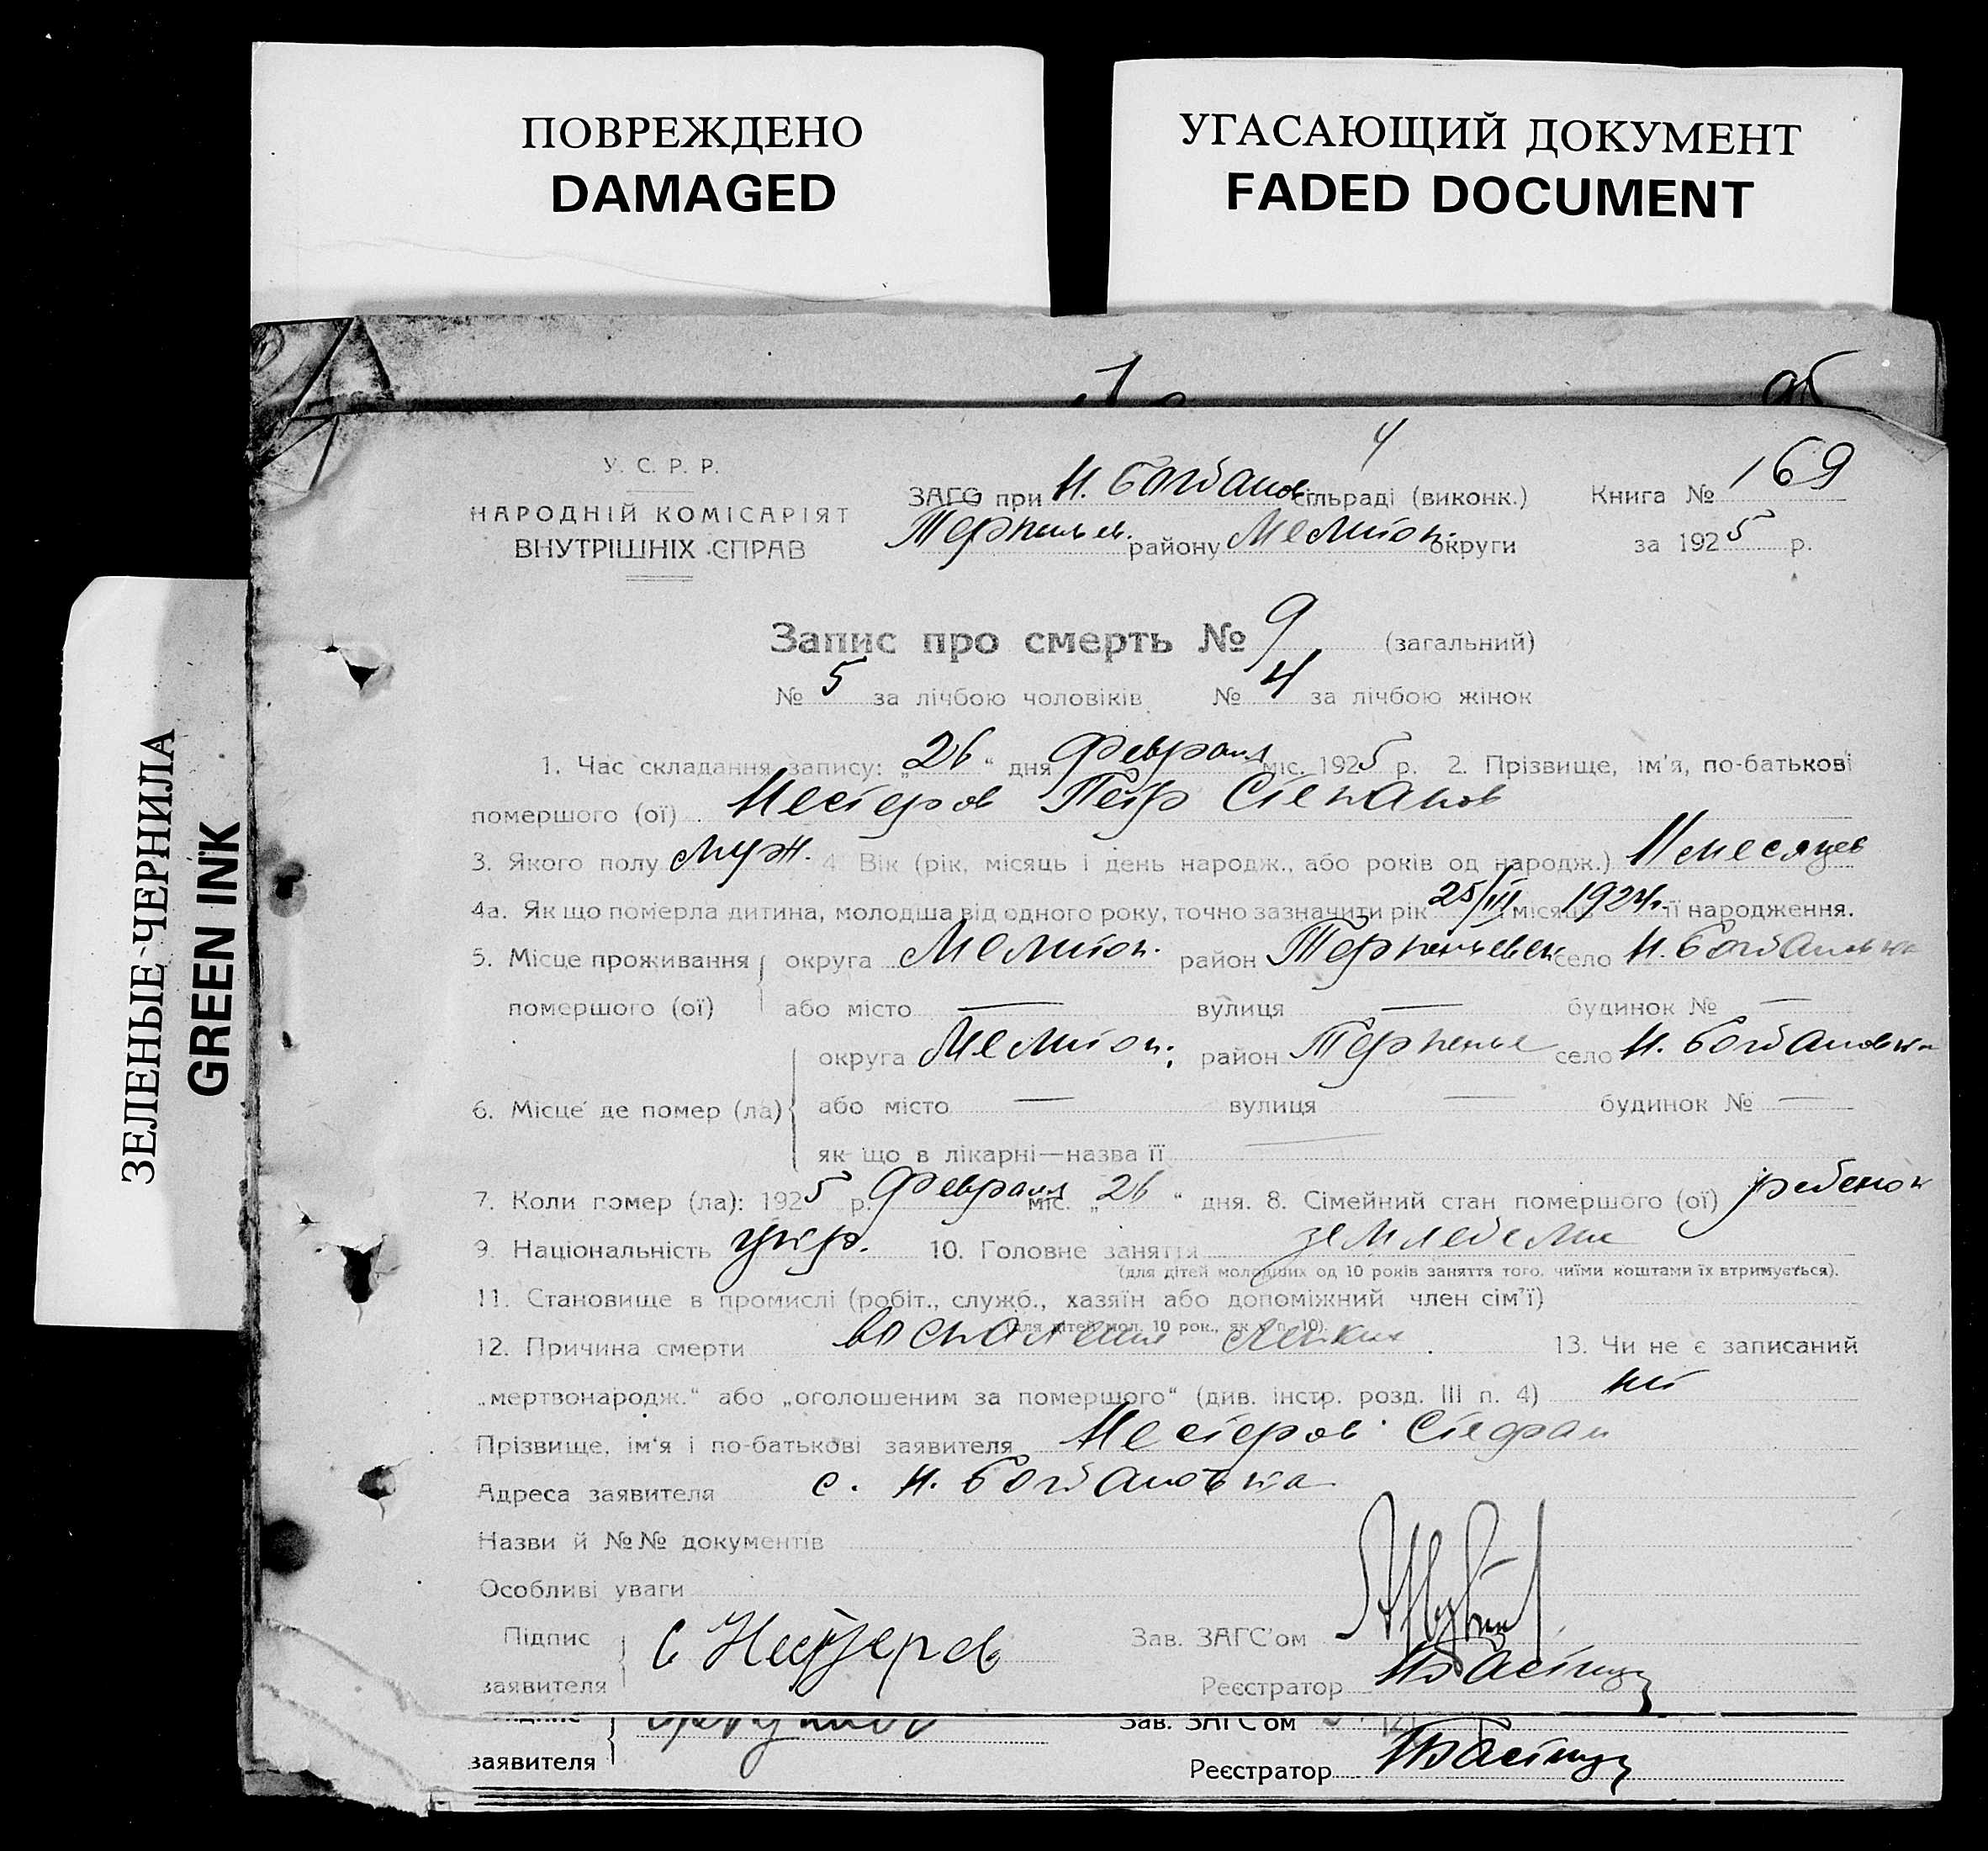 ПОВРЕЖДЕНО
DAMAGED
УГАСАЮЩИЙ ДОКУМЕНТ
FADED DOCUMENT
ЗЕЛЕНЫЕ ЧЕРНИЛА
GREEN INK
4
У. С. Р. Р.
НАРОДНІЙ КОМІСАРІЯТ
ВНУТРІШНІХ СПРАВ
ЗАГС при Н. Богданов. сільраді (виконк.)
Терпеньев. району Мелитоп. округи
Книга № 169
за 1925 р.
Запис про смерть № 9 (загальний)
№ 5 за лічбою чоловіків № 4 за лічбою жінок
1. Час складання запису: „26“ дня Февраля міс. 1925 р. 2. Прізвище, ім'я, по-батькові
помершого (ої) Нестеров Петр Степанов
3. Якого полу муж. 4 Вік (рік, місяць і день народж., або років од народж.) 11 месяцев
4а. Як що померла дитина, молодша від одного року, точно зазначити рік 25/III місяць 1924 г. її народження.
5. Місце проживання округа Мелитоп. район Терпеньевск село Н. Богдановка
помершого (ої) або місто — вулиця — будинок № —
округа Мелитоп. район Терпенье село Н. Богдановка
6. Місце де помер (ла) або місто — вулиця — будинок № —
як що в лікарні—назва її —
7. Коли помер (ла): 1925 р. Февраля міс. „26“ дня. 8. Сімейний стан помершого (ої) ребенок
9. Національність укр. 10. Головне заняття земледелие
(для дітей молодших од 10 років заняття того, чиїми коштами їх втримується).
11. Становище в промислі (робіт., служб., хазяїн або допоміжний член сім'ї)
(для дітей мол. 10 рок., як в п. 10).
12. Причина смерти воспаление легких 13. Чи не є записаний
„мертвонародж.“ або „оголошеним за помершого“ (див. інстр. розд. III п. 4) ні
Прізвище, ім'я і по-батькові заявителя Нестеров Стефан
Адреса заявителя с. Н. Богдановка
Назви й №№ документів
Особливі уваги
Підпис
заявителя
С Нестеров
Зав. ЗАГС'ом
Реєстратор
Зав. ЗАГС'ом
заявителя
Реєстратор